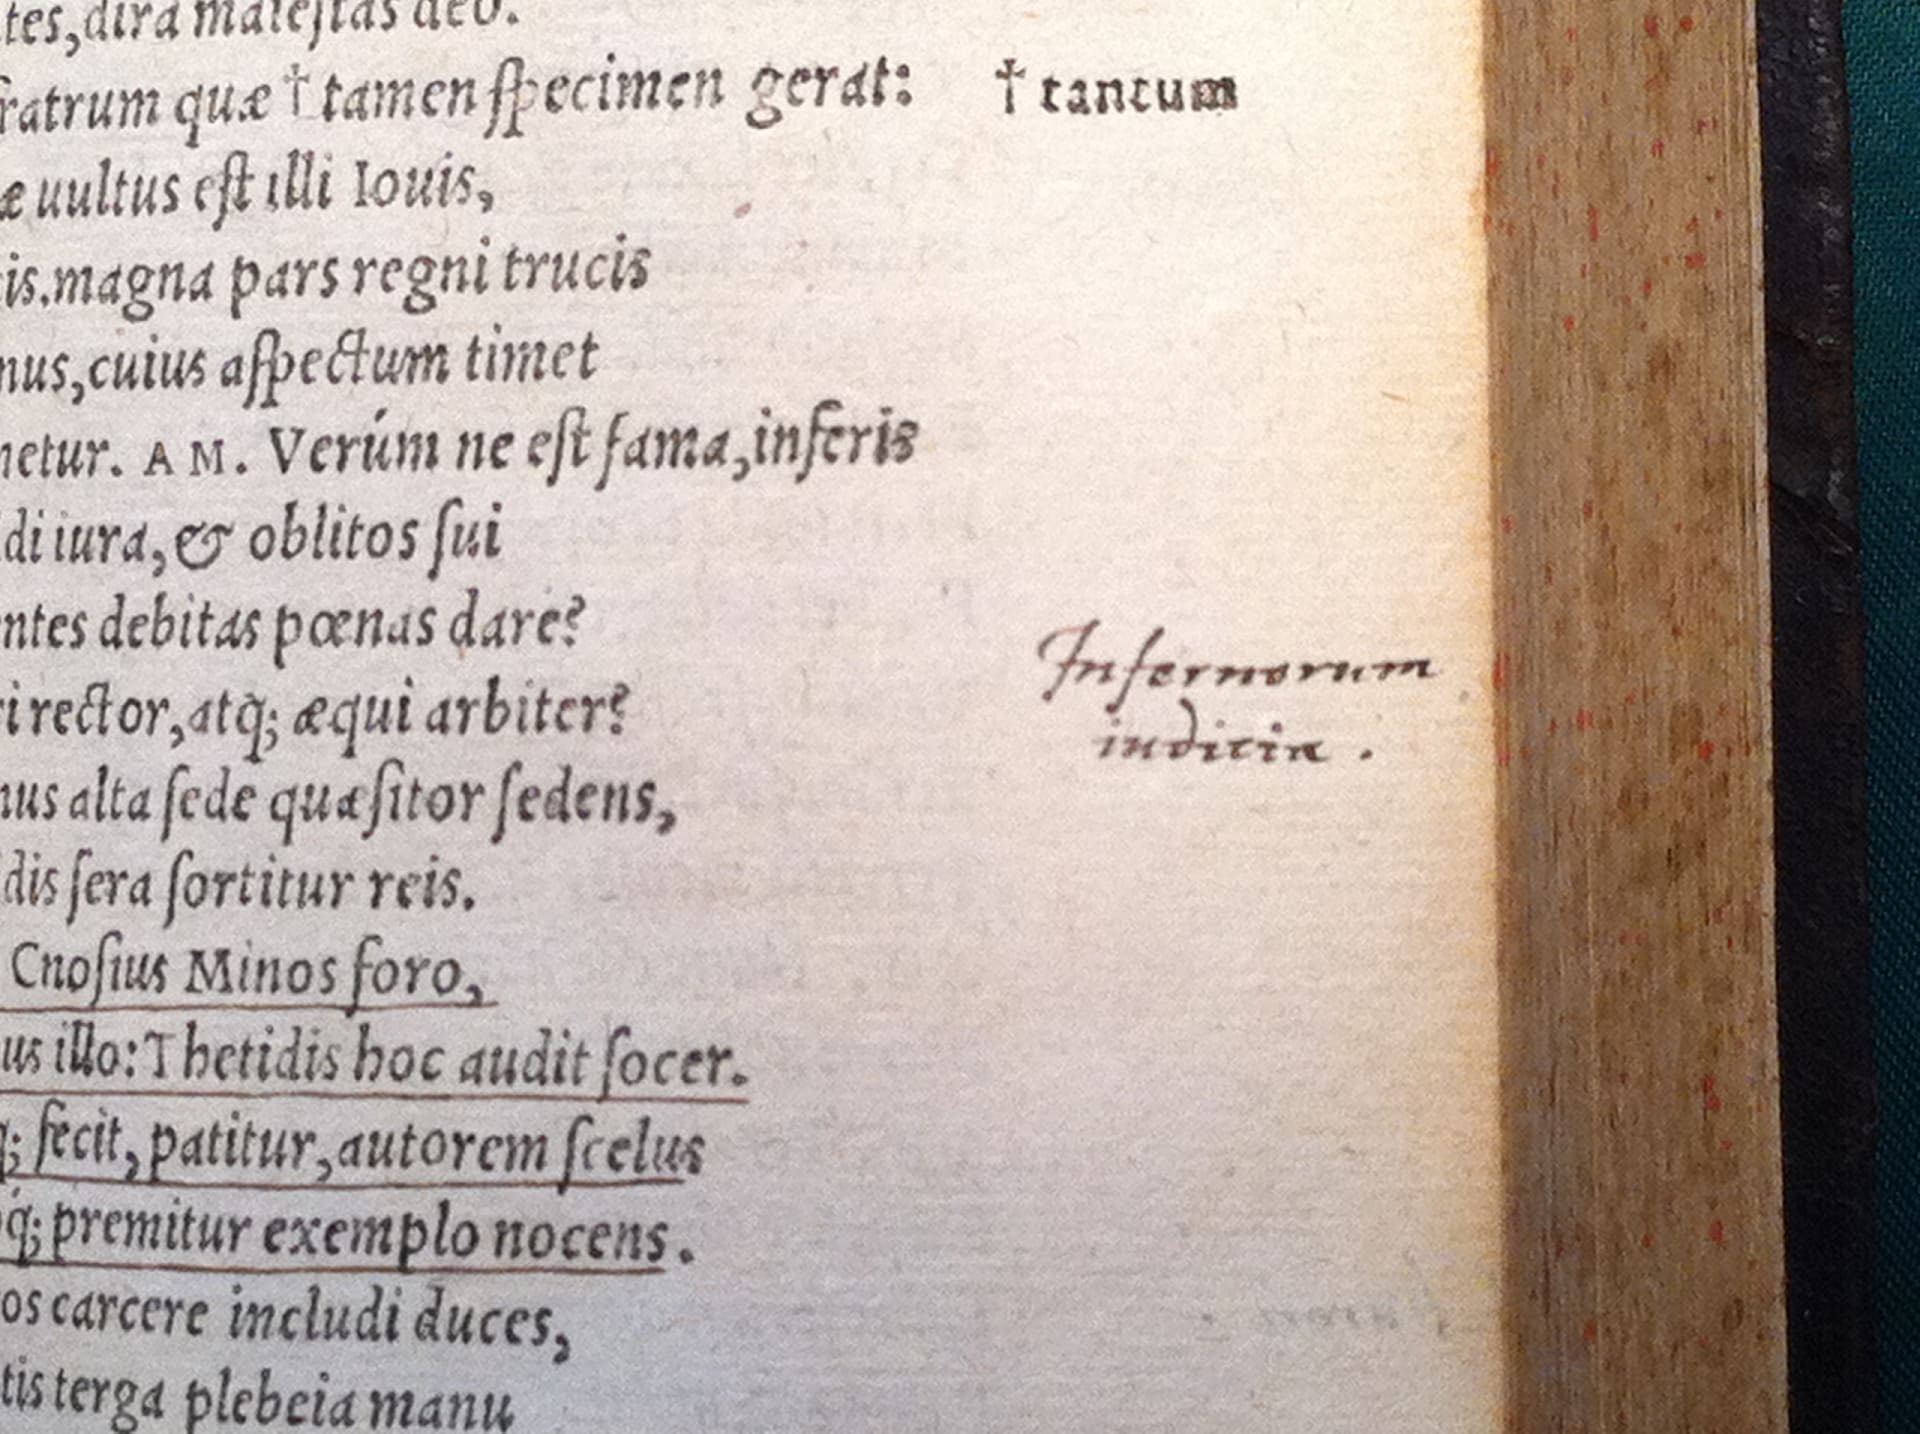 tes, dira maieſtas deo.
fratrum quæ † tamen ſpecimen gerat: † tantum
æ uultus eſt illi Iouis,
is. magna pars regni trucis
nus, cuius aſpectum timet
netur. AM. Verúm ne eſt fama, inferis
di iura, & oblitos ſui
ntes debitas pœnas dare?
i rector, atq; æqui arbiter?
Infernorum
iudicia.
nus alta ſede quæſitor ſedens,
dis ſera ſortitur reis.
Cnoſius Minos foro,
us illo: Thetidis hoc audit ſocer.
q; fecit, patitur, autorem ſcelus
óq; premitur exemplo nocens.
os carcere includi duces,
tis terga plebeia manu